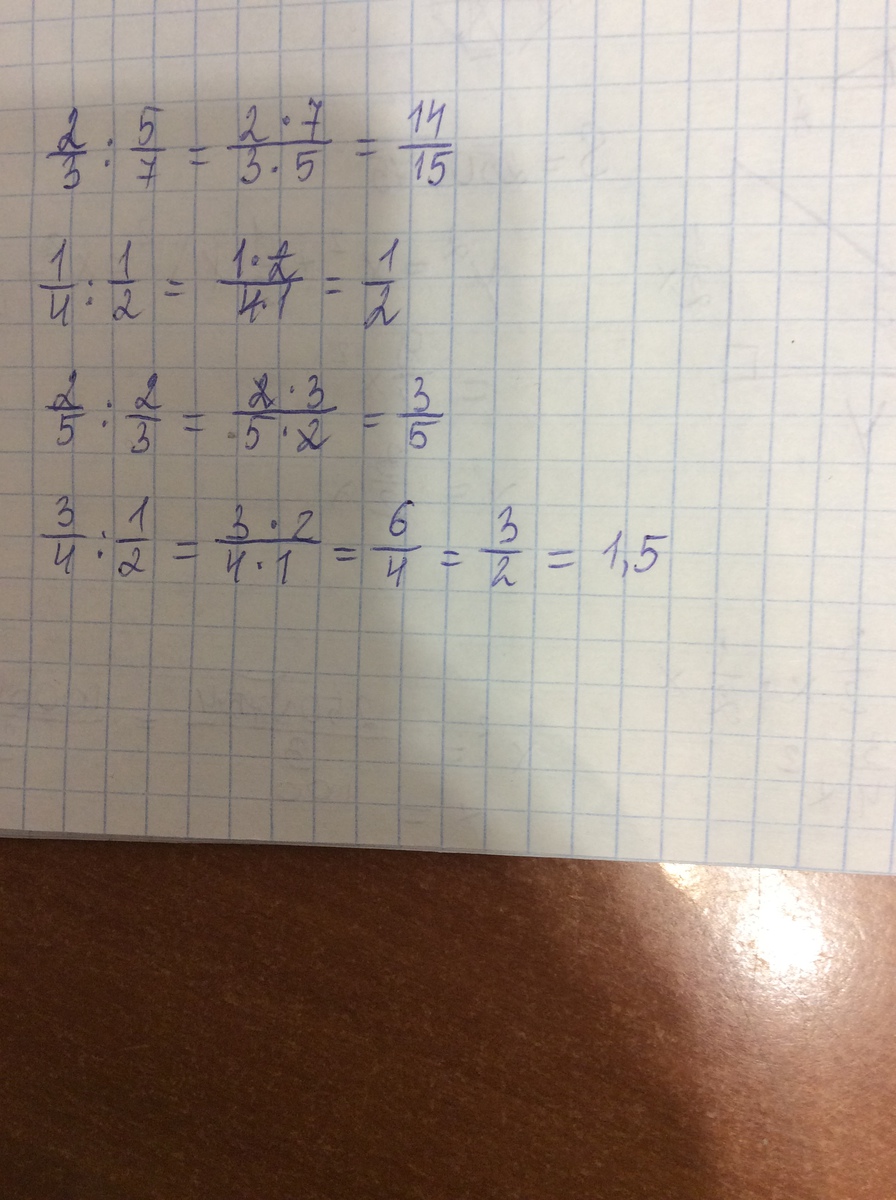 2/3 : 5/7 = 2·7/3·5 = 14/15
1/4 : 1/2 = 1·2/4·1 = 1/2
2/5 : 2/3 = 2·3/5·2 = 3/5
3/4 : 1/2 = 3·2/4·1 = 6/4 = 3/2 = 1,5